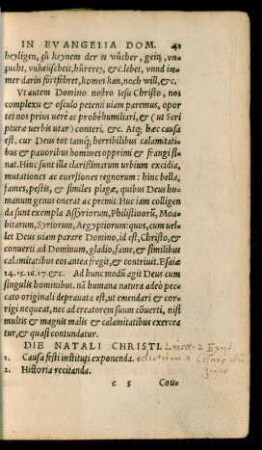 IN EVANGELIA DOM. 41
heyligen, zů keynem der ein wůcher, geitz, vn
zucht, vnkeüscheit, hůrerey, &c. lebet, vnnd im
mer darin fortfehret, komen kan, noch will, &c.
Vt autem Domino nostro Iesu Christo, nos
complexu & osculo petenti uiam paremus, opor
tet nos prius uere ac probè humiliari, & (ut Scri
pturæ uerbis utar) conteri, &c. Atq; hæc causa
est, cur Deus tot tantiq; horribilibus calamitati
bus & pauoribus homines opprimi & frangi si
nat. Hinc sunt illa clarissimarum urbium excidia,
mutationes ac euersiones regnorum: hinc bella,
fames, pestis, & similes plagæ, quibus Deus hu
manum genus onerat ac premit. Huc iam colligen
da sunt exempla Assyriorum, Philistinorũ, Moa
bitarum, Syriorum, Aegyptiorum: quos, cum uel
let Deus uiam parare Domino, id est, Christo, &
conuerti ad Dominum, gladio, fame, & similibus
calamitatibus eos antea fregit, & contriuit. Esaiæ
14. 15. 16. 17. &c. Ad hunc modũ agit Deus cum
singulis hominibus. nã humana natura adeò pec
cato originali deprauata est, ut emendari & cor
rigi nequeat, nec ad creatorem suum cõuerti, nisi
multis & magnis malis & calamitatibus exercea
tur, & quasi contundatur.
DIE NATALI CHRISTI.
1. Causa festi instituti exponenda.
2. Historia recitanda.
e 5 Con=